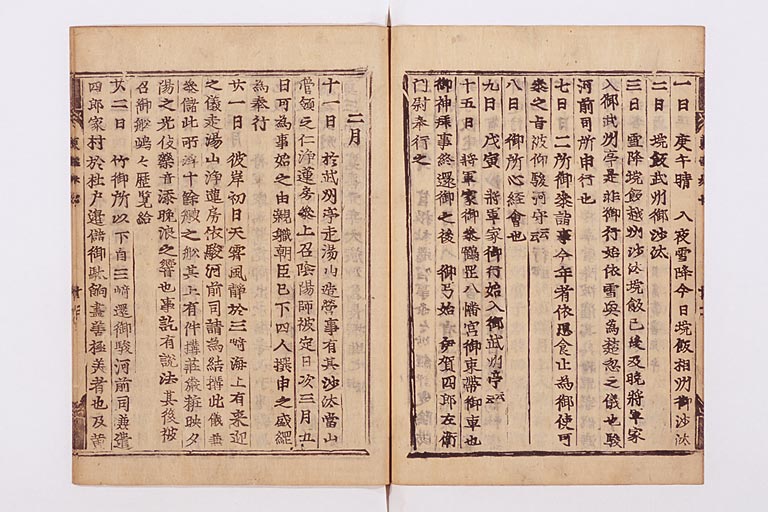 一日 庚午晴 入夜雪降今日垸飯相州御沙汰
二日 垸飯武州御沙汰
三日 雪降垸飯越州沙汰垸飯已後及晩將軍家
入御武州亭是非御行始依雪興為楚忽之儀也駿
河前司所申行也
七日 二所御參詣事今年者依愚食止為御使可
參之旨被仰駿河守云云
八日 御所心經會也
九日 戊寅 將軍家御行始入御武州亭云云
十五日 將軍家御參鶴罡八幡宮御束帶御車也
御神拜事終還御之後 御弓始 伊賀四郎左衛
門尉奉行之
二月
十一日 於武州亭走湯山造營事有其沙汰當山
管領之仁淨蓮房參上召陰陽師被定日次三月五
日可為事始之由親職朝臣已下四人撰申之盛綱
為奉行
廿一日 彼岸初日天霽風靜於三崎海上有來迎
之儀走湯山淨蓮房依駿河前司請為結搆此儀兼
參儲此所浮十餘艘之舩其上有件搆莊嚴粧映夕
陽之光伎樂音添晚浪之響也事訖有說法其後被
召御舩嶋々歷覽給
廿二日 竹御所以下自三崎還御駿河前司兼遣
四郎家村於杜戶邊儲御駄餉盡善極美者也及黃